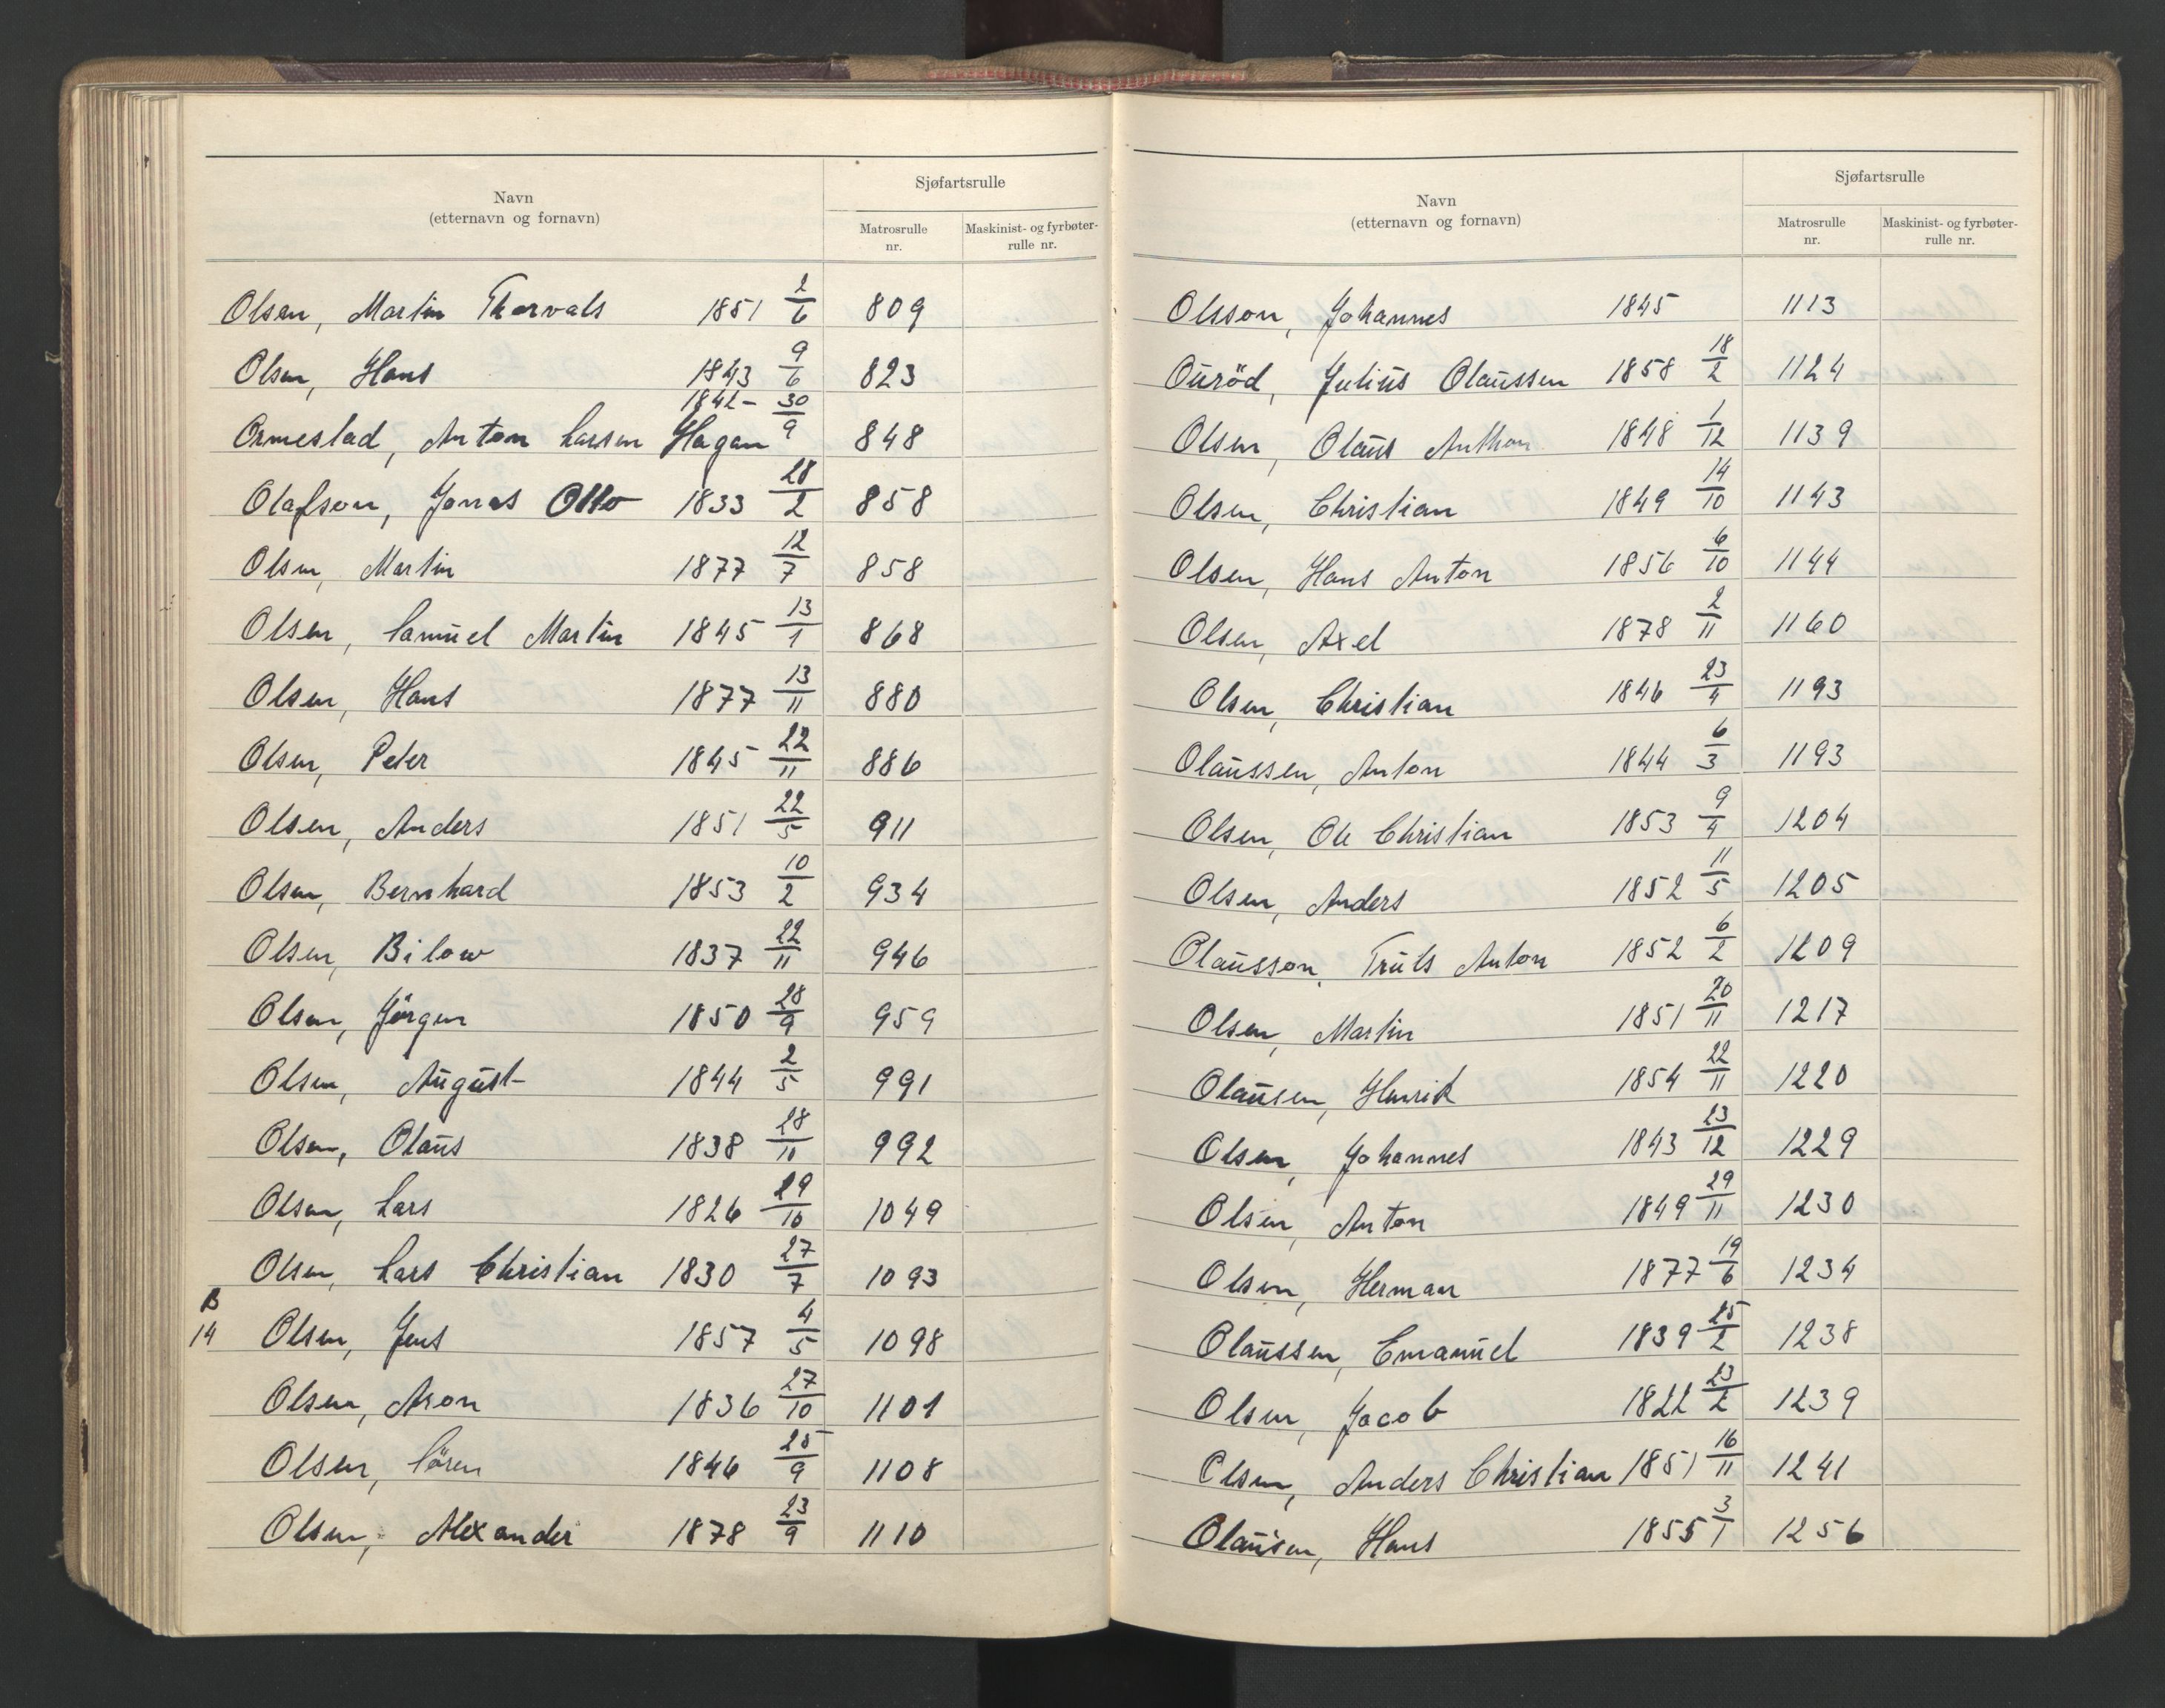 Navn
(etternavn og fornavn)
Sjøfartsrulle
Matrosrulle
nr.
Maskinist- og fyrbøter-
rulle nr.
Olsen, Martin Thorvals 1851 2/6 809
Olsen, Hans 1843 9/6 823
1842- 30/9
Ormestad, Anton Larsen Hagan 848
Olafson, Jonas Otto 1833 28/2 858
Olsen, Martin 1877 12/7 858
Olsen, Samuel Martin 1845 13/1 868
Olsen, Hans 1877 13/11 880
Olsen, Peter 1845 22/11 886
Olsen, Anders 1851 22/5 911
Olsen, Bernhard 1853 10/2 934
Olsen, Bilow 1837 22/11 946
Olsen, Jörgen 1850 28/9 959
Olsen, August 1844 2/5 991
Olsen, Olaus 1838 992
Olsen, Lars 1826 29/10 1049
Olsen, Lars Christian 1830 27/7 1093
B
14 Olsen, Jens 1857 4/5 1098
Olsen, Aron 1836 27/10 1101
Olsen, Sören 1846 25/9 1108
Olsen, Alexander 1878 23/9 1110
Navn
(etternavn og fornavn)
Sjøfartsrulle
Matrosrulle
nr.
Maskinist- og fyrbøter-
rulle nr.
Olsson, Johannes 1845 1113
Ouröd, Julius Olaussen 1858 18/2 1124
Olsen, Olaus Anthon 1848 1/12 1139
Olsen, Christian 1849 14/10 1143
Olsen, Hans Anton 1856 6/10 1144
Olsen, Axel 1878 2/11 1160
Olsen, Christian 1846 23/4 1193
Olaussen, Anton 1844 6/3 1193
Olsen, Ole Christian 1853 9/4 1204
Olsen, Anders 1852 11/5 1205
Olausson, Truls Anton 1852 6/2 1209
Olsen, Martin 1851 20/11 1217
Olausen, Henrik 1854 22/11 1220
Olsen, Johannes 1843 23/12 1229
Olsen, Anton 1849 29/11 1230
Olsen, Herman 1877 19/6 1234
Olaussen, Emanuel 1839 25/2 1238
Olsen, Jacob 1822 23/2 1239
Olsen, Anders Christian 1851 16/11 1241
Olausen, Hans 1855 3/1 1256